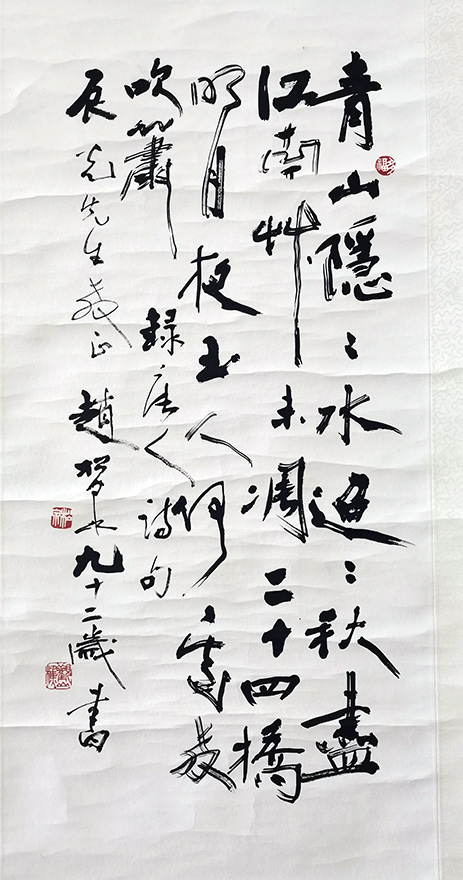 青山隱〻水迢〻秋盡
江南艸未凋二十四橋
明月夜玉人何處教
吹簫
錄唐人詩句
辰光先生教正
趙
九十二歲書